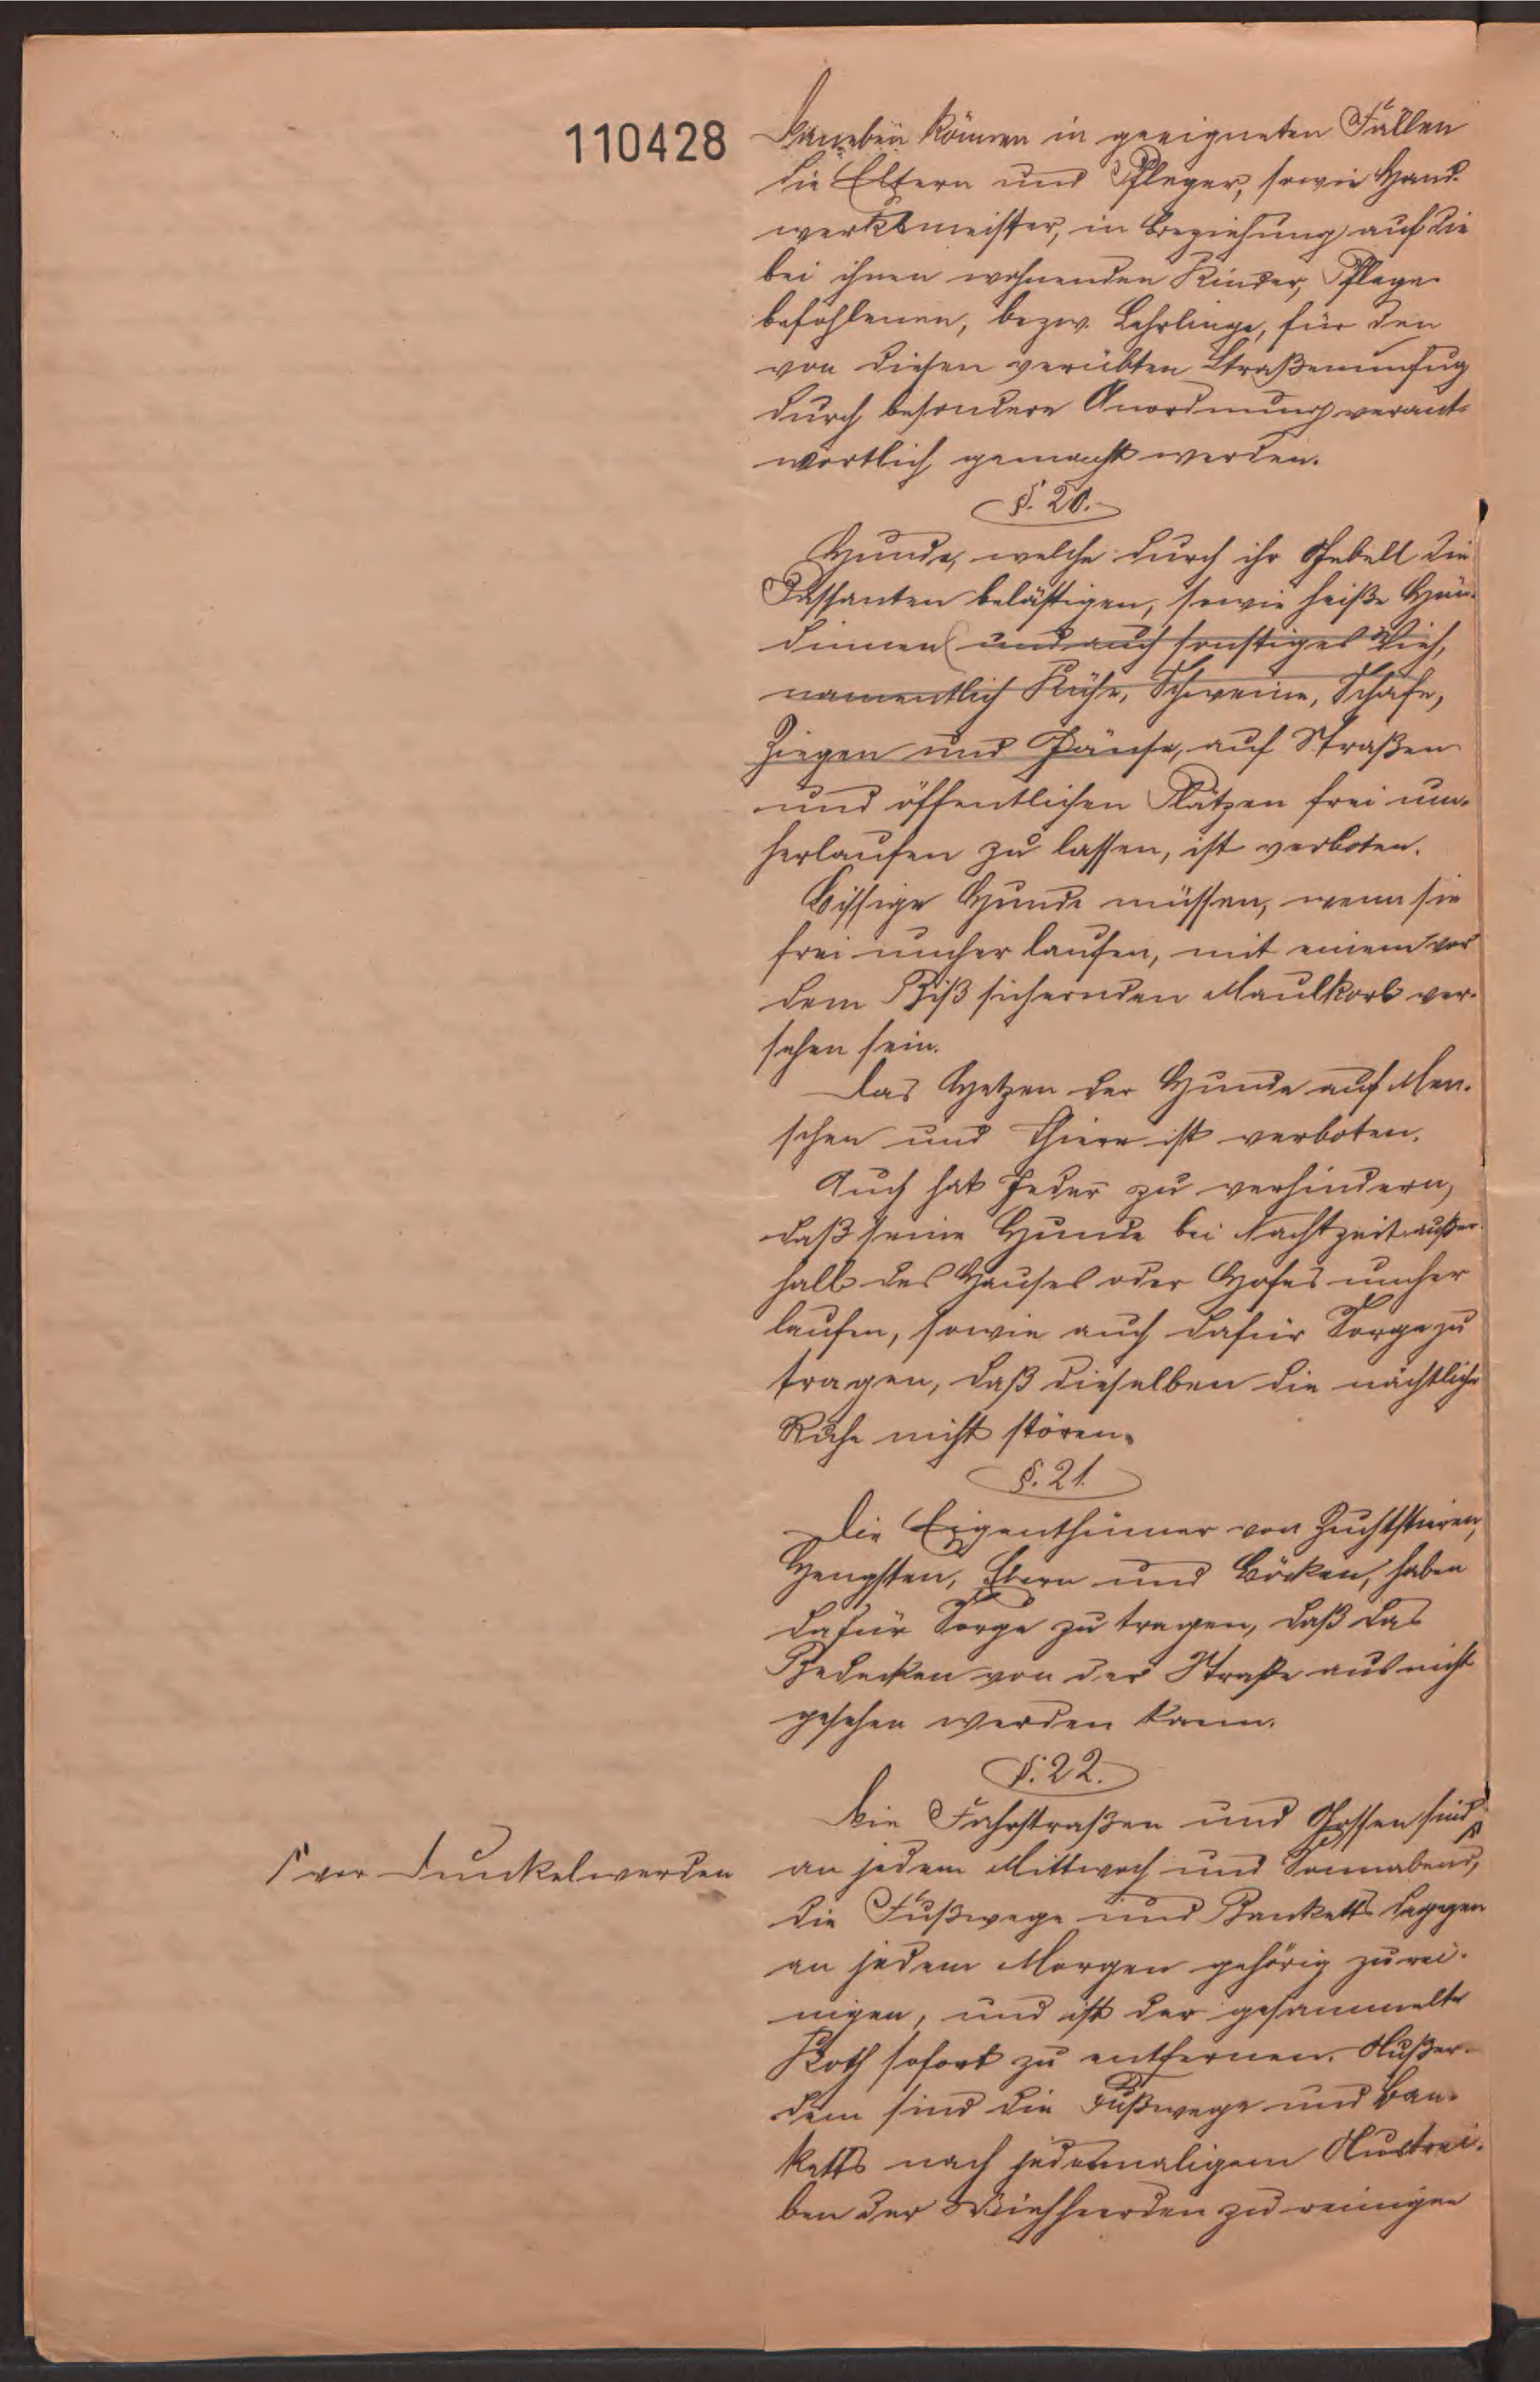 110428
Daneben können in geeigneten Fällen
die Eltern und Pfleger, sowie Hand-
werksmeister, in Beziehung auf die
bei ihnen wohnenden Kinder, Pflege-
befohlenen, bezw. Lehrlinge, für den
von diesen verübten Straßenunfug
durch besondere Anordnung verant-
wortlich gemacht werden.
§. 20.
Hunde, welche durch ihr Gebell die
Passanten belästigen, sowie heiße Hün-
dinnen (und auch sonstiges Vieh,
namentlich Kühe, Schweine, Schafe,
Ziegen und Gänse, auf Straßen
und öffentlichen Plätzen frei um-
herlaufen zu lassen, ist verboten.
Bissige Hunde müssen, wenn sie
frei umher laufen, mit einem vor
dem Biß sichernden Maulkorb ver-
sehen sein.
Das Hetzen der Hunde auf Men-
schen und Thiere ist verboten.
Auch hat Jeder zu verhindern,
daß seine Hunde bei Nachtzeit außer-
halb des Hauses oder Hofes umher
laufen, sowie auch dafür Sorge zu
tragen, daß dieselben die nächtliche
Ruhe nicht stören.
§. 21.
Die Eigenthümer von Zuchtstieren,
Hengsten, Ebern und Böcken, haben
dafür Sorge zu tragen, daß das
Bedecken von der Straße aus nicht
gesehen werden kann.
§. 22.
Die Fahrstraßen und Gossen sind
an jedem Mittwoch und Sonnabend,
vor Dunkelwerden
die Fußwege und Banketts dagegen
an jedem Morgen gehörig zu rei-
nigen, und ist der gesammelte
Koth sofort zu entfernen. Außer-
dem sind die Fußwege und Ban-
ketts nach jedesmaligem Austrei-
ben der Viehheerden zu reinigen